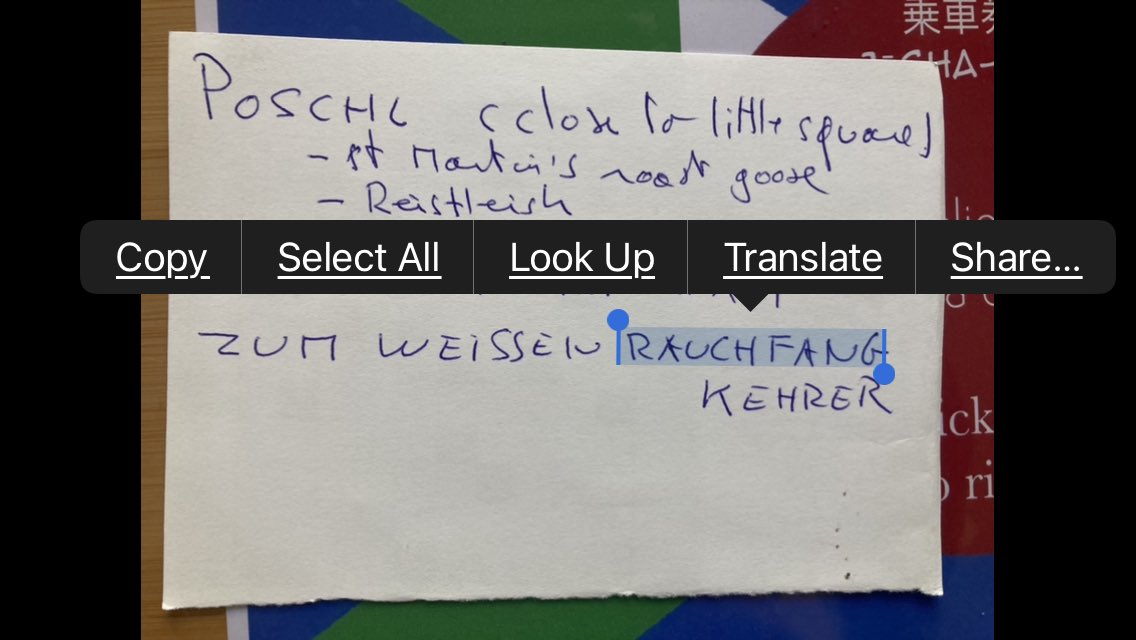 乗車
POSCHL (close to little square)
- st Martin's roast goose
- Reisfleish
Copy
Select All
Look Up
Translate
Share...
ZUM WEISSEN RAUCHFANG
KEHRER
ick
ri